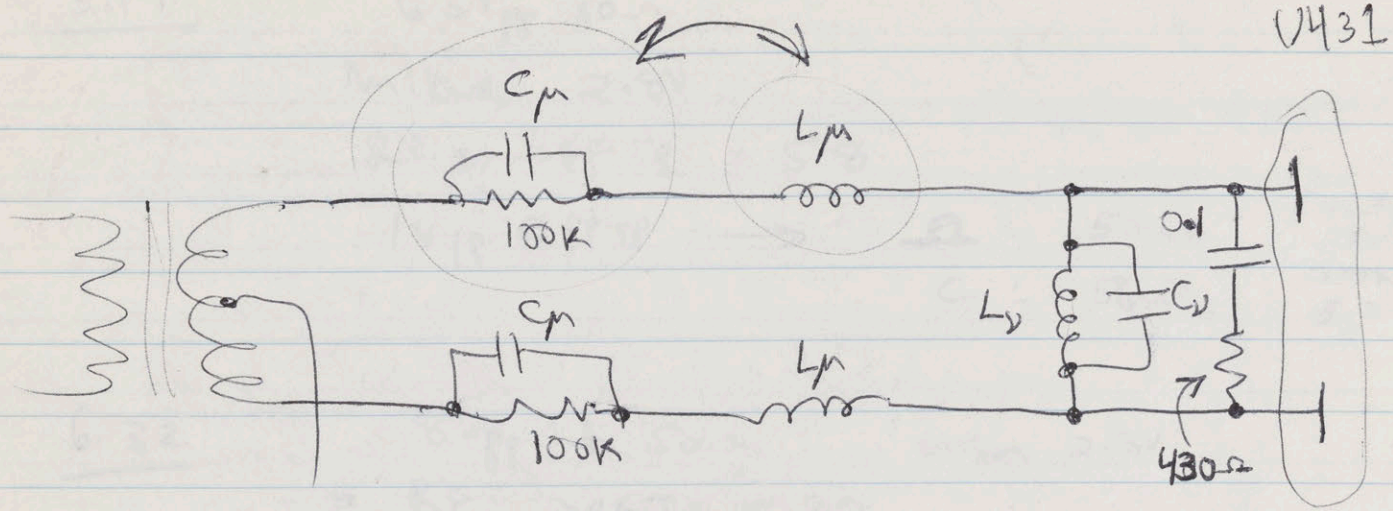 V431
Cμ
Lμ
100K
0.1
Cμ
Lν
Cν
Lμ
100K
430Ω